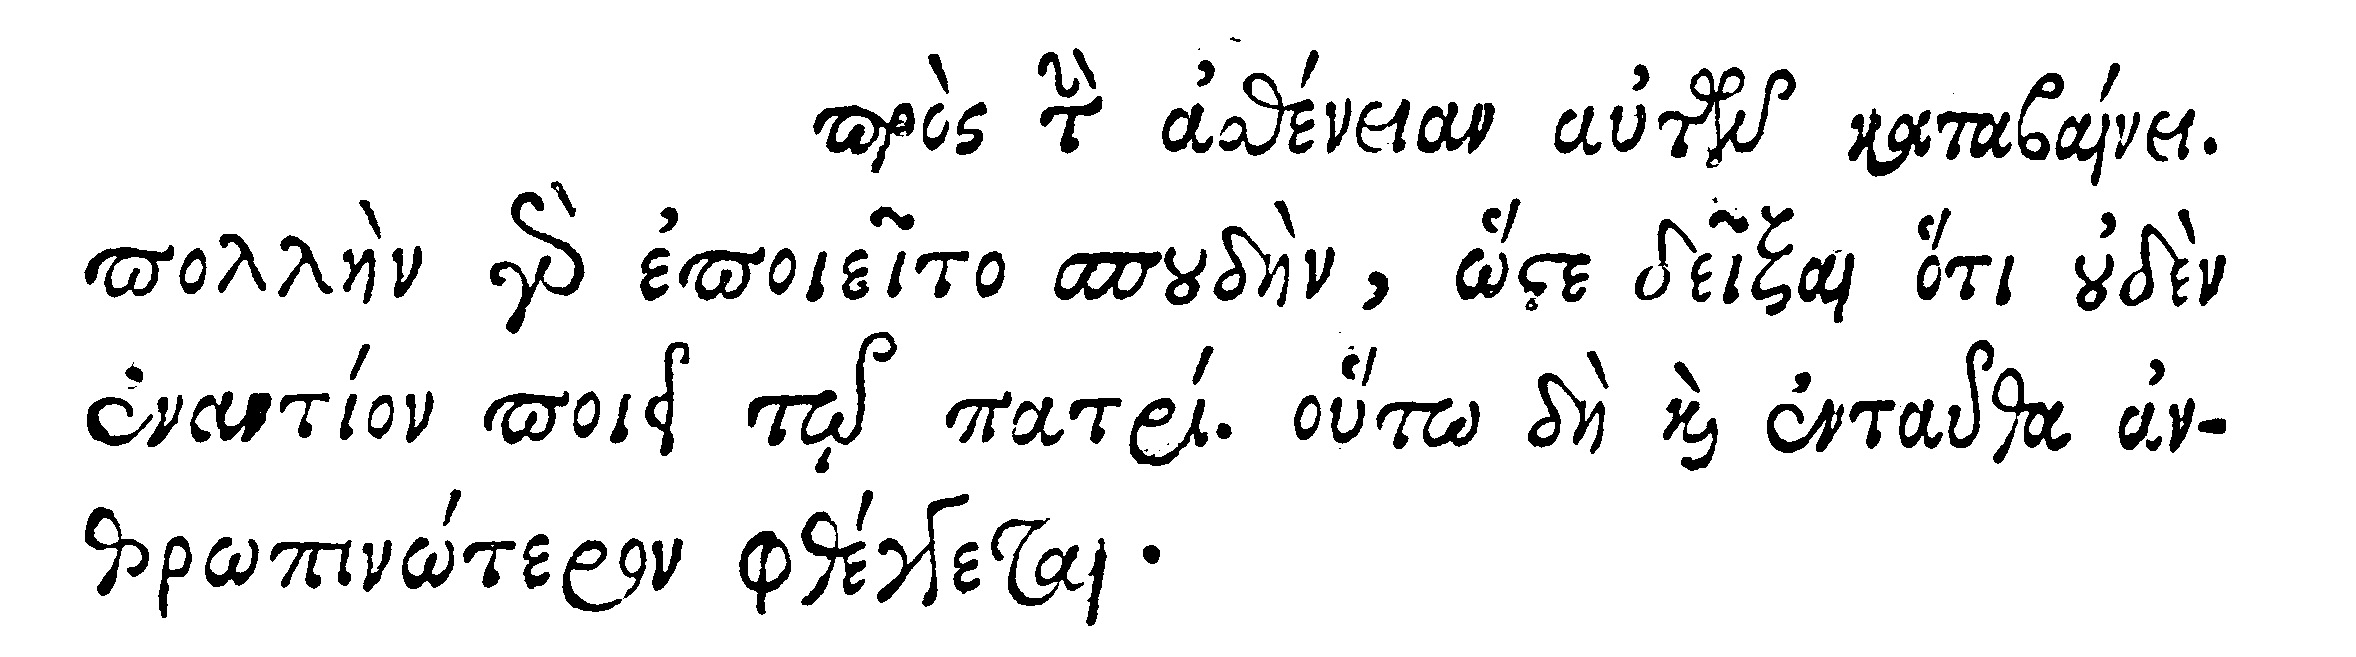 πρὸς τὴν ἀσθένειαν αὐτῶν καταβαίνει.
πολλὴν γὰρ ἐποιεῖτο σπουδὴν, ὥστε δεῖξαι ὅτι οὐδὲν
ἐναντίον ποιεῖ τῷ πατρί. οὕτω δὴ καὶ ἐνταῦθα ἀν-
θρωπινώτερον φθέγγεται.